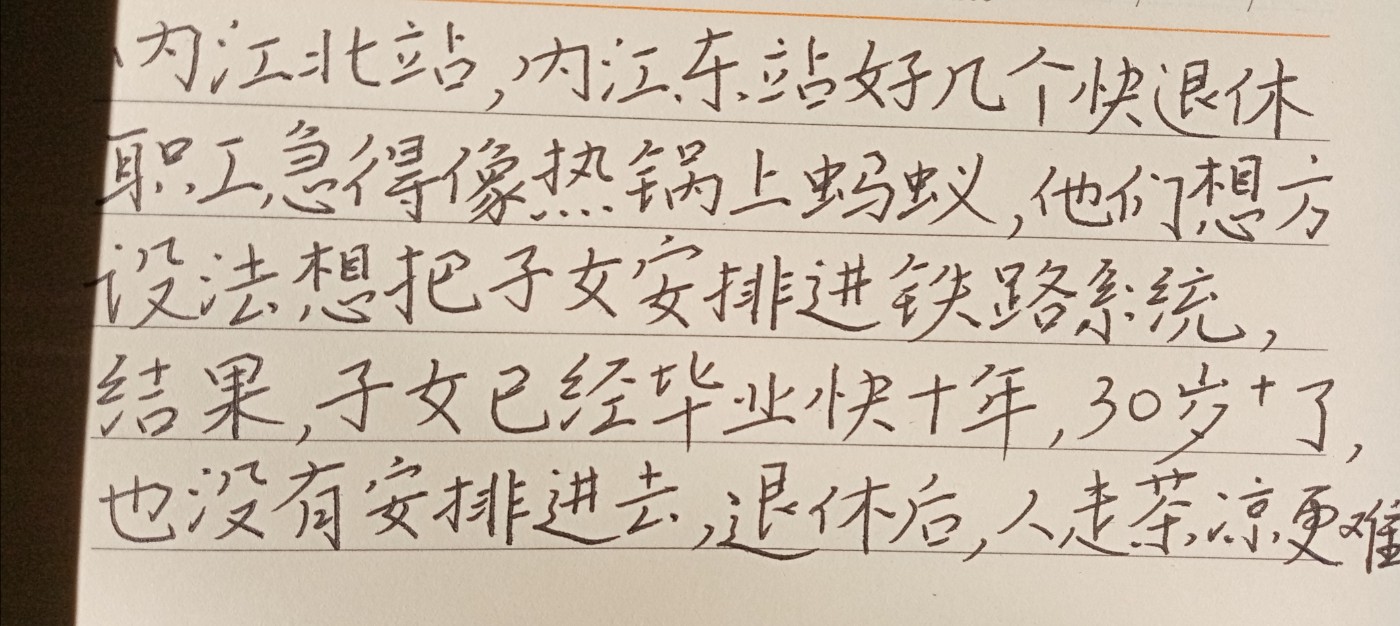 内江北站,内江东站好几个快退休
职工急得像热锅上蚂蚁,他们想方
设法想把子女安排进铁路系统,
结果,子女已经毕业快十年,30岁+了,
也没有安排进去,退休后,人走茶凉更难